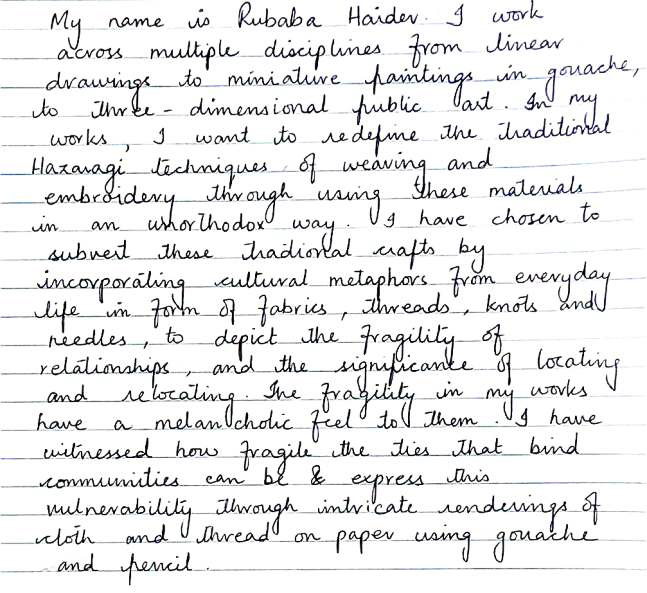 My name is Rubaba Haider. I work
across multiple disciplines from linear
drawings to miniature paintings in gouache,
to three - dimensional public art. In my
works, I want to redefine the traditional
Hazaragi techniques of weaving and
embroidery through using these materials
in an unorthodox way. I have chosen to
subvert these tradional crafts by
incorporating cultural metaphors from everyday
life in form of fabrics, threads, knots and
needles, to depict the fragility of
relationships, and the significance of locating
and relocating. The fragility in my works
have a melancholic feel to them. I have
witnessed how fragile the ties that bind
communities can be & express this
vulnerability through intricate renderings of
cloth and thread on paper using gouache
and pencil.